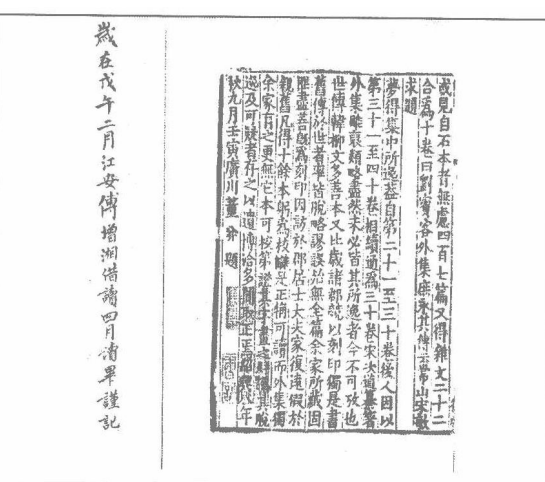 或見自石本者無慮四百七篇又得雜文二十二
合為十卷曰劉賓客外集庶永其傳云常山宋敏
求題
夢得集中所逸蓋自第二十一至三十卷後人因以
第三十一至四十卷相續通為三十卷宋次道纂著
外集雖裒類略盡然未必皆其所逸者今不可攷也
世傳韓柳文多善本又比歲諸郡競以刻印獨是書
舊傳於世者率皆脫略謬誤殆無全篇余家所藏固
匪盡善既為刻印因訪於郡居士大夫家復遠假於
親舊凡得十餘本躬為校讎是正稍可讀而外集獨
余家有之更無它本可挍第證其字畫之訛誤其脫
逸及可疑者存之以遺博洽多聞取正焉紹興八年
秋九月壬寅廣川董弅題
歲在戊午二月江安傅增湘借讀四月清畢謹記